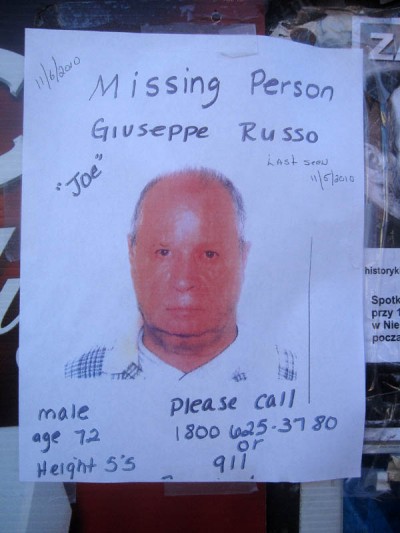 11/6/2010
Missing Person
Giuseppe Russo
"Joe"
Last seen
11/5/2010
male
age 72
Height 5'5
Please call
1800 625-3780
or
911
ZA
historyk
Spotk
przy 1
w Nie
pocza